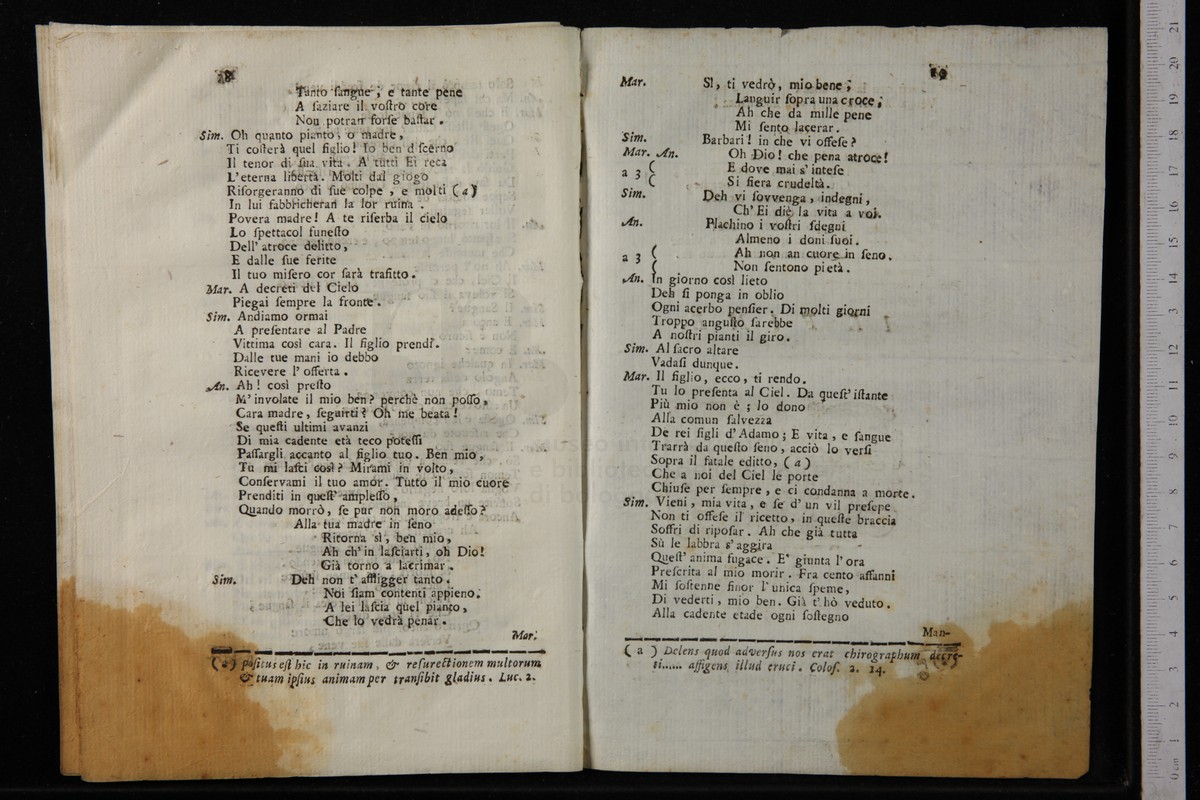 18
Tanto ſangue; e tante pene
A ſaziare il voſtro core
Non potran forſe baſtar.
Sim. Oh quanto pianto, o madre,
Ti coſterà quel figlio! Io ben d ſcerno
Il tenor di ſua vita. A tutti Ei reca
L'eterna libertà. Molti dal giogo
Riſorgeranno di ſue colpe, e molti (a)
In lui fabbricheran la lor ruina.
Povera madre! A te riſerba il cielo
Lo ſpettacol funeſto
Dell' atroce delitto,
E dalle ſue ferite
Il tuo miſero cor ſarà trafitto.
Mar. A decreti del Cielo
Piegai ſempre la fronte.
Sim. Andiamo ormai
A preſentare al Padre
Vittima così cara. Il figlio prendi.
Dalle tue mani io debbo
Ricevere l' offerta.
An. Ah! così preſto
M' involate il mio ben? perchè non poſſo,
Cara madre, ſeguirti? Oh me beata!
Se queſti ultimi avanzi
Di mia cadente età teco poteſſi
Paſſargli accanto al figlio tuo. Ben mio,
Tu mi laſci così? Mirami in volto,
Conſervami il tuo amor. Tutto il mio cuore
Prenditi in queſt' ampleſſo,
Quando morrò, ſe pur non moro adeſſo?
Alla tua madre in ſeno
Ritorna sì, ben mio,
Ah ch' in laſciarti, oh Dio!
Già torno a lacrimar.
Sim. Deh non t' affligger tanto.
Noi ſiam contenti appieno.
A lei laſcia quel pianto,
Che lo vedrà penar.
Mar.
(a) poſitus eſt hic in ruinam, & reſurectionem multorum
& tuam ipſius animam per tranſibit gladius. Luc. 2.
19
Mar. Sì, ti vedrò, mio bene;
Languir ſopra una croce;
Ah che da mille pene
Mi ſento lacerar.
Sim. Barbari! in che vi offeſe?
Mar. An. Oh Dio! che pena atroce!
a 3 ( E dove mai s' inteſe
( Si fiera crudeltà.
Sim. Deh vi ſovvenga, indegni,
Ch' Ei diè la vita a voi.
An. Plachino i voſtri ſdegni
Almeno i doni ſuoi.
a 3 ( Ah non an cuore in ſeno.
( Non ſentono pietà.
An. In giorno così lieto
Deh ſi ponga in oblio
Ogni acerbo penſier. Di molti giorni
Troppo anguſto ſarebbe
A noſtri pianti il giro.
Sim. Al ſacro altare
Vadaſi dunque.
Mar. Il figlio, ecco, ti rendo.
Tu lo preſenta al Ciel. Da queſt' iſtante
Più mio non è; lo dono
Alla comun ſalvezza
De rei figli d' Adamo; E vita, e ſangue
Trarrà da queſto ſeno, acciò lo verſi
Sopra il fatale editto, (a)
Che a noi del Ciel le porte
Chiuſe per ſempre, e ci condanna a morte.
Sim. Vieni, mia vita, e ſe d' un vil preſepe
Non ti offeſe il ricetto, in queſte braccia
Soffri di ripoſar. Ah che già tutta
Sù le labbra s' aggira
Queſt' anima fugace. E' giunta l' ora
Preſcrita al mio morir. Fra cento affanni
Mi ſoſtenne finor l' unica ſpeme,
Di vederti, mio ben. Già t' hò veduto.
Alla cadente etade ogni ſoſtegno
Man-
(a) Delens quod adverſus nos erat chirographum decre-
ti...... affigens illud cruci. Coloſ. 2. 14.